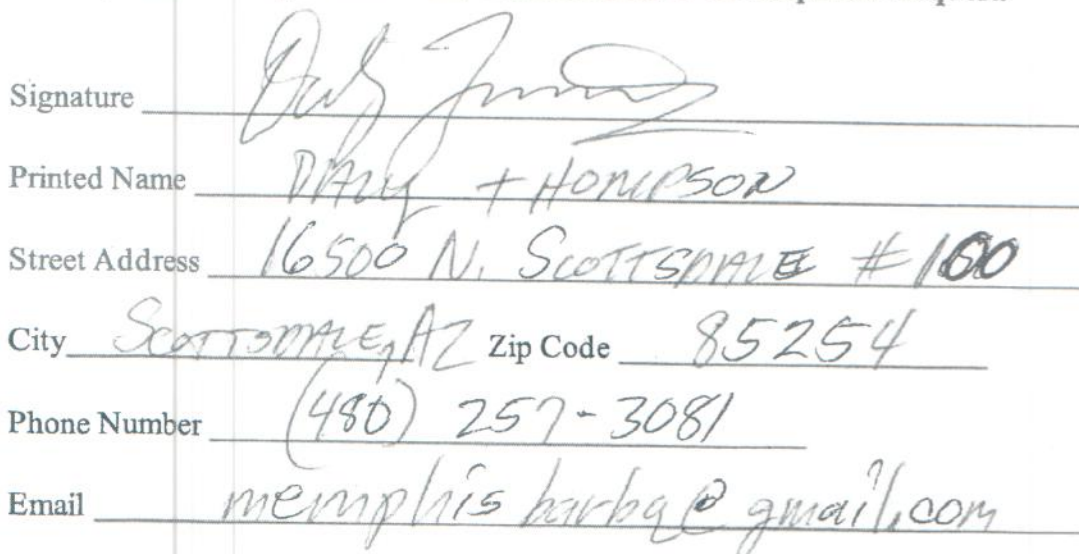 Signature
Printed Name THOMPSON
Street Address 16500 N. SCOTTSDALE #100
City SCOTTSDALE, AZ Zip Code 85254
Phone Number (480) 257-3081
Email memphis barbq@gmail.com